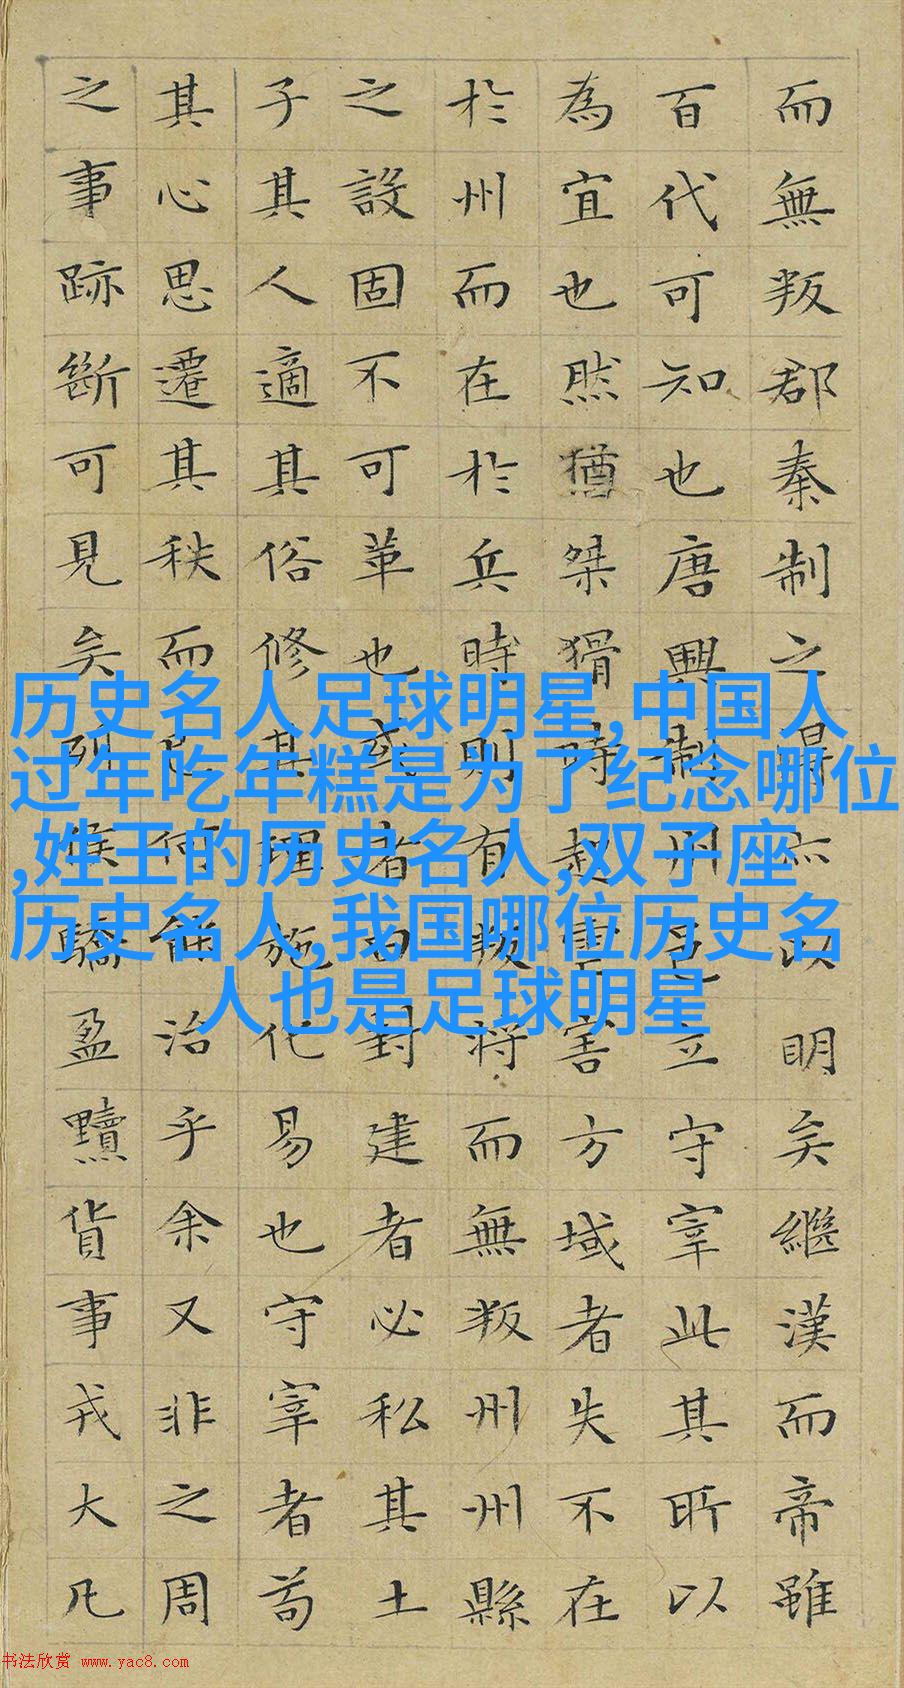 而無叛郡秦制之得亦以明矣繼漢而帝雖
百代可知也唐興制州邑立守宰此其所以
為宜也然猶桀猾時起虐害方域者失不在
於州而在於兵時則有叛將而無叛州州縣
之設固不可革也或者曰封建者必私其土
子其人適其俗修其理施化易也守宰者苟
其心思遷其秩而已何能治乎余又非之周
之事跡斷可見矣列侯驕盈黷貨事戎大凡
历史名人足球明星,中国人
过年吃年糕是为了纪念哪位
,姓王的历史名人,双子座
历史名人,我国哪位历史名
人也是足球明星
书法欣赏 www.yac8.com